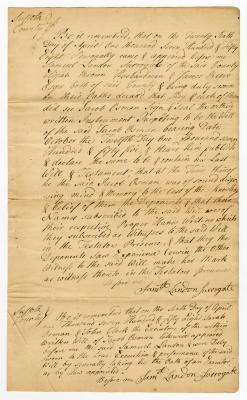 Suffolk
County ss
Be it remembered, that on the Twenty Sixth
Day of April One thousand Seven Hundred & Fifty
Eight Personally came & appeared before me
Samuel Landon Surrogate of the Said County
Brown Husbandman & James Reeve
both of said County & being duly sworn
on their Oaths declared that they & each of them
did see Jacob Osman Sign & Seal the within
written Instrument Purporting to be the Will
of the said Jacob Osman bearing Date
October the Twelfth Day One thousand seven
Hundred & fifty five & Heard him publish
& declare the same to be & contain his Last
Will & Testament; that at the Time thereof
he the said Jacob Osman was of sound dispo-
sing mind & Memory to the best of the Knowledge
& Belief of them the Deponents & that their
Names subscribed to the said Will are of
their respective Proper Hand Writing which
they subscribed as Witnesses to the said Will
in the Testators Presence & that they the
Deponents saw the other
Witness to the said Will make his Mark
as witness thereto in the Testators presence
before me
Samll Landon Surrogate
Suffolk
County ss
Be it remembered that on the Sixth Day of April
One Thousand Seven Hundred & fifty eight Sarah
Osman & John Clark the Executors of the within
written Will of Jacob Osman likewise appeared
before me the said Samuel Landon & were Duly
sworn to the true Execution & performance of the said
Will by severally taking the Oath of an Executor
as by Law appointed
Before me Samll Landon Surrogate